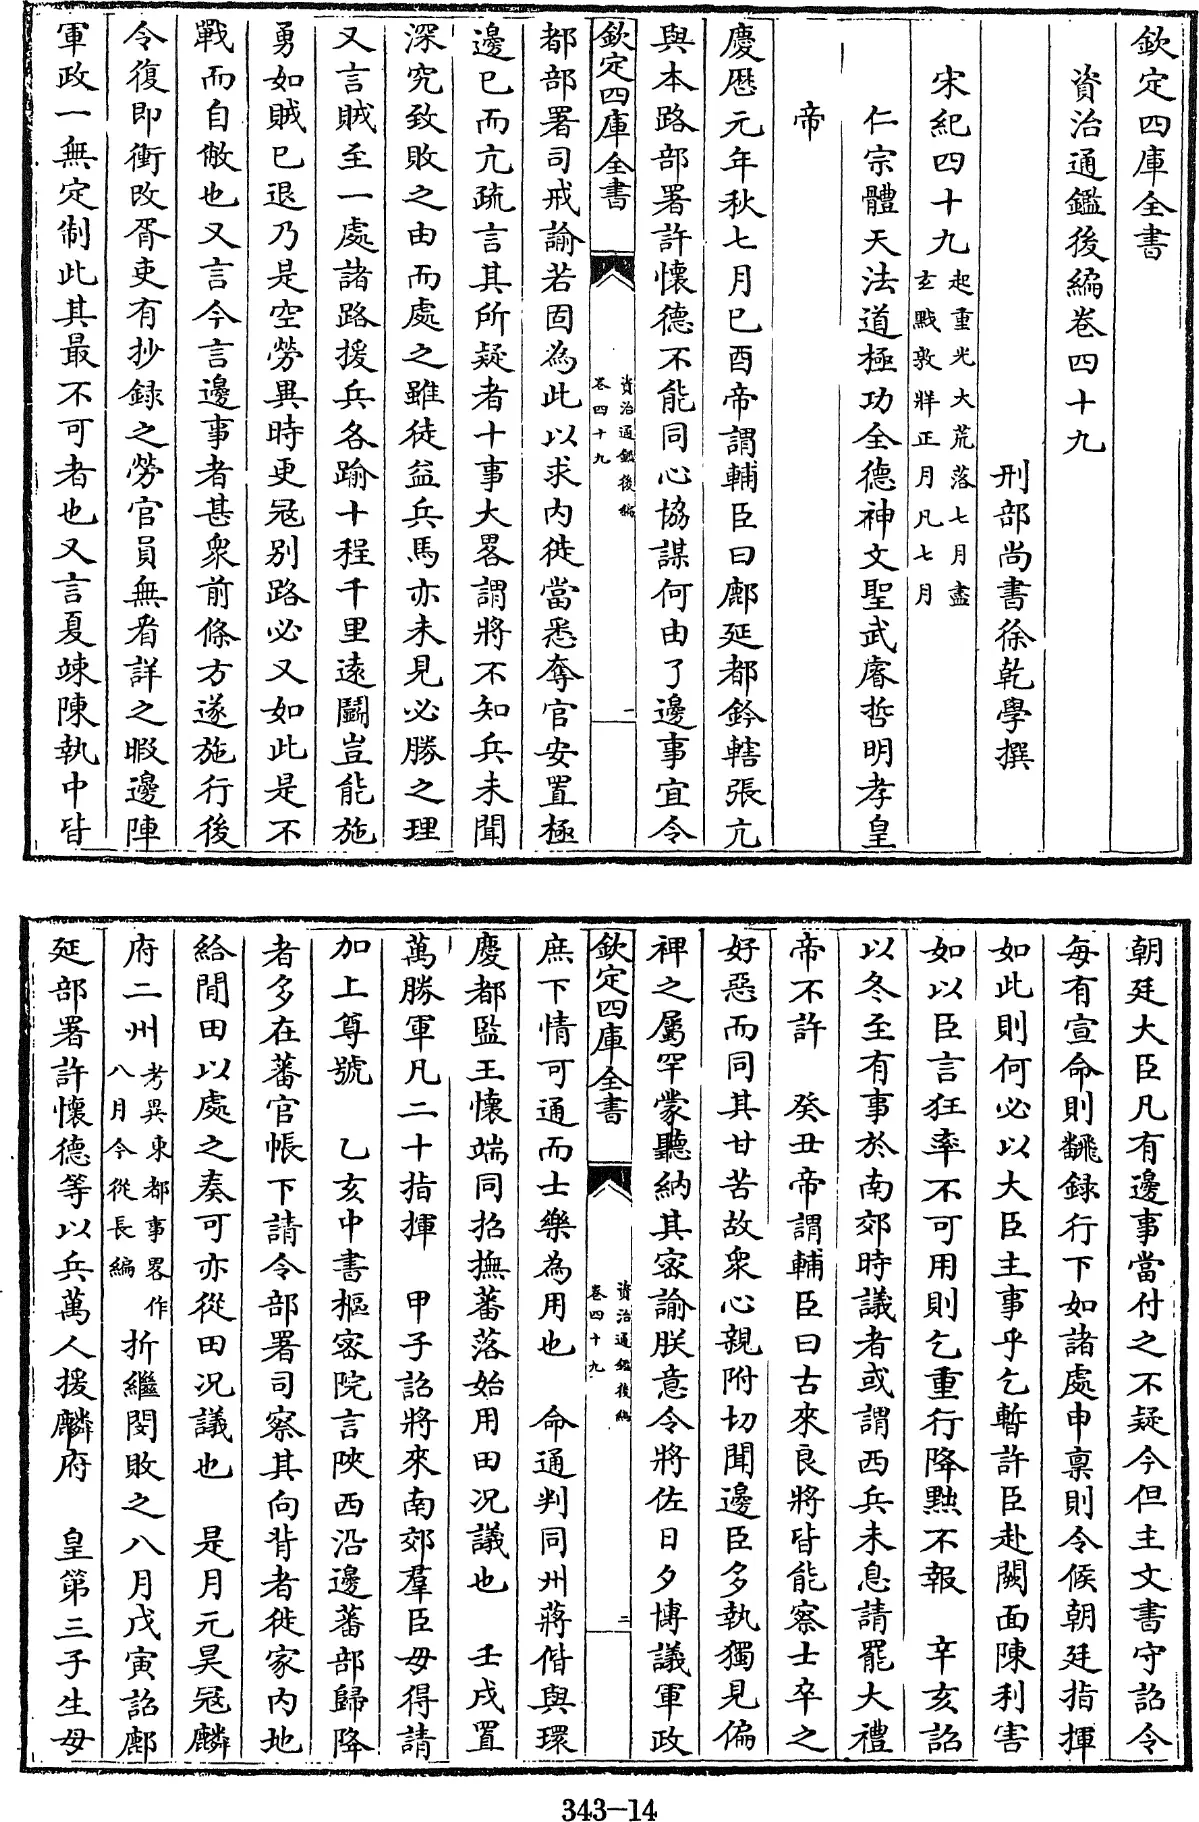 欽定四庫全書
資治通鑑後編卷四十九
刑部尚書徐乾學撰
宋紀四十九起重光大荒落七月盡玄黓敦牂正月凡七月
仁宗體天法道極功全德神文聖武睿哲明孝皇
帝
慶厯元年秋七月己酉帝謂輔臣曰鄜延都鈐轄張亢
與本路部署許懷德不能同心協謀何由了邊事宜令
欽定四庫全書
資治通鑑後編
卷四十九
一
都部署司戒諭若固為此以求内徙當悉奪官安置極
邊已而亢疏言其所疑者十事大畧謂將不知兵未聞
深究致敗之由而處之雖徒益兵馬亦未見必勝之理
又言賊至一處諸路援兵各踰十程千里遠鬬豈能施
勇如賊已退乃是空勞異時更冦别路必又如此是不
戰而自倣也又言今言邊事者甚衆前條方遂施行後
令復即衝改胥吏有抄録之勞官員無看詳之暇邊陣
軍政一無定制此其最不可者也又言夏竦陳執中皆
朝廷大臣凡有邊事當付之不疑今但主文書守詔令
每有宣命則飜録行下如諸處申禀則令候朝廷指揮
如此則何必以大臣主事乎乞暫許臣赴闕面陳利害
如以臣言狂率不可用則乞重行降黜不報　辛亥詔
以冬至有事於南郊時議者或謂西兵未息請罷大禮
帝不許　癸丑帝謂輔臣曰古來良將皆能察士卒之
好惡而同其甘苦故衆心親附切聞邊臣多執獨見偏
裨之屬罕蒙聽納其宻諭朕意令將佐日夕博議軍政
欽定四庫全書
資治通鑑後編
卷四十九
二
庶下情可通而士樂為用也　命通判同州蔣偕與環
慶都監王懷端同招撫蕃落始用田况議也　壬戌置
萬勝軍凡二十指揮　甲子詔將來南郊羣臣毋得請
加上尊號　乙亥中書樞宻院言陜西沿邊蕃部歸降
者多在蕃官帳下請令部署司察其向背者徙家内地
給閒田以處之奏可亦從田况議也　是月元昊冦麟
府二州考異東都事畧作八月今從長編折繼閔敗之八月戊寅詔鄜
延部署許懷德等以兵萬人援麟府　皇第三子生母
343—14